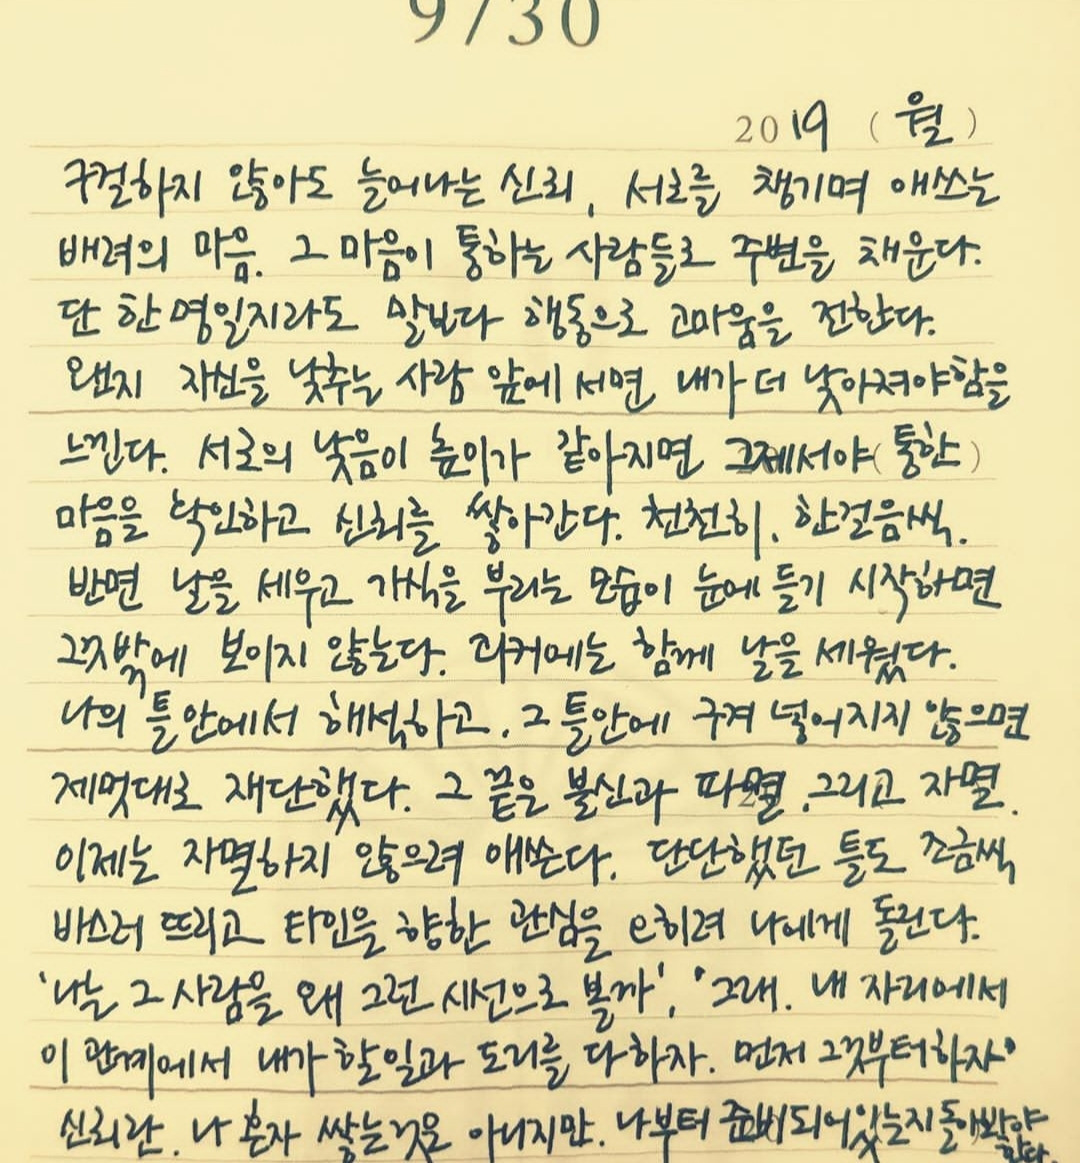 9/30
2019 (월)
구걸하지 않아도 늘어나는 신뢰, 서로를 챙기며 애쓰는
배려의 마음. 그 마음이 통하는 사람들로 주변을 채운다.
단 한 명일지라도 말보다 행동으로 고마움을 전한다.
왠지 자신을 낮추는 사람 앞에 서면 내가 더 낮아져야함을
느낀다. 서로의 낮음이 높이가 같아지면 그제서야(통한)
마음을 확인하고 신뢰를 쌓아간다. 천천히, 한걸음씩.
반면 날을 세우고 가식을 부리는 모습이 눈에 들기 시작하면
그것밖에 보이지 않는다. 과거에는 함께 날을 세웠다.
나의 틀안에서 해석하고, 그 틀안에 구겨 넣어지지 않으면
제멋대로 재단했다. 그 끝은 불신과 파멸, 그리고 자멸.
이제는 자멸하지 않으려 애쓴다. 단단했던 틀도 조금씩
바스러 뜨리고 타인을 향한 관심을 오히려 나에게 돌린다.
'나는 그 사람을 왜 그런 시선으로 볼까', '그래. 내 자리에서
이 관계에서 내가 할일과 도리를 다하자. 먼저 그것부터하자'
신뢰란, 나 혼자 쌓는것은 아니지만, 나부터 준비되어있는지 돌아봐야
한다.